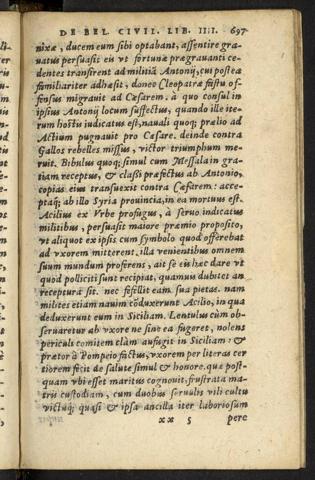 DE BEL. CIVIL. LIB. IIII. 697
nixæ, ducem eum sibi optabant, assentire gra-
uatus persuasit eis vt fortunæ prægrauanti ce-
dentes transirent ad militiā Antonij, cui postea
familiariter adhæsit, donec Cleopatræ fastu of-
fensus migrauit ad Cæsarem. à quo consul in
ipsius Antonij locum suffectus, quando ille ite-
rum hostis iudicatus est, nauali quoq; prælio ad
Actium pugnauit pro Cæsare. deinde contra
Gallos rebelles missus, victor triumphum me-
ruit. Bibulus quoq; simul cum Messala in gra-
tiam receptus, & classi præfectus ab Antonio,
copias eius transuexit contra Cæsarem: acce-
ptaq; ab illo Syria prouincia, in ea mortuus est.
Acilius ex Vrbe profugus, à seruo indicatus
militibus, persuasit maiore præmio proposito,
vt aliquot ex ipsis cum symbolo quod offerebat
ad vxorem mitterent. illa venientibus omnem
suum mundum proferens, ait se eis hæc dare vt
quod polliciti sunt recipiat, quamuis dubitet an
receptura sit. nec fefellit eam sua pietas. nam
milites etiam nauim cōduxerunt Acilio, in qua
deduxerunt eum in Siciliam. Lentulus cùm ob-
seruaretur ab vxore ne sine ea fugeret, nolens
periculi comitem clàm aufugit in Siciliam: &
prætor à Pompeio factus, vxorem per literas cer
tiorem fecit de salute simul & honore. quæ post-
quam vbi esset maritus cognouit, frustrata ma-
tris custodiam, cum duobus seruulis vili cultu
victuq; quasi & ipsa ancilla iter laboriosum
xx 5 pere